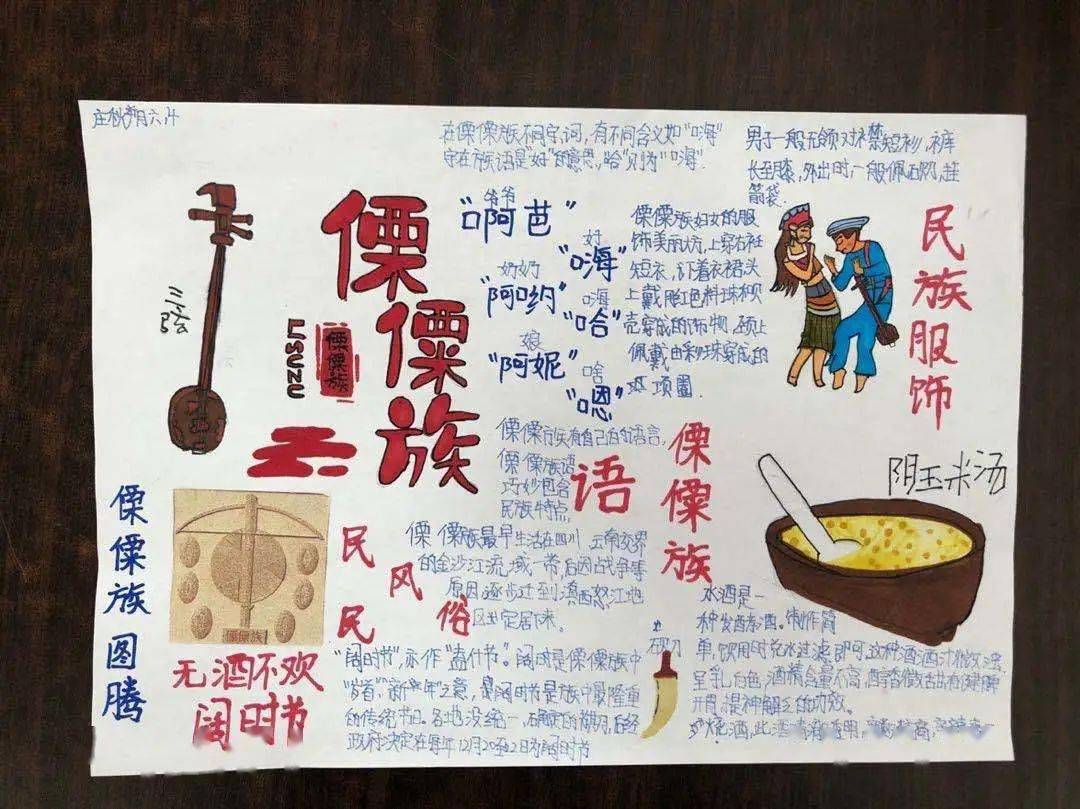 六.4
在傈僳族不同字,词,有不同含义如"嗨"
字在族语是"好"的意思,"哈"则为"嗨".
男子一般无领对襟短衫,裤
长至膝,外出时,一般佩砍刀,挂
箭袋.
三弦
傈僳族
LISUZU
傈僳族
爷爷
"啊芭"
好
"嗨"
奶奶
"阿哟"
嗨
"哈"
娘
"阿妮"
啥
"嗯"
傈僳族妇女的服
饰美丽大方,上穿右衽
短衣,下着衣裙头
上戴 红色料珠和贝
壳穿成的饰物,颈上
佩戴由彩珠穿成的
项圈
民族服饰
傈僳族有自己的语言,
傈僳族语
巧妙包含
民族特点,
傈僳族
语
傈僳族图腾
傈僳族
民风民俗
傈僳族最早生活在四川、云南交界
的金沙江流域一带后因战争等
原因逐步迁到滇西怒江地
区定居下来。
阴玉米汤
无酒不欢
阔时节
"阔时节",亦作"盍什节"。阔时是傈僳族中
"岁首""新年"之意,是阔时节是族中最隆重
的传统节日。各地没统一、
政府决定在每年12月20至22日为阔时节
砍刀
水酒是一
种发酵酒。制作简
单,饮用时兑水过滤即可,这种酒酒汁微淡
呈乳白色,酒精含量不高,醇香微甜有健脾
开胃,提神解乏的功效。
烧酒,此酒清澈透明,